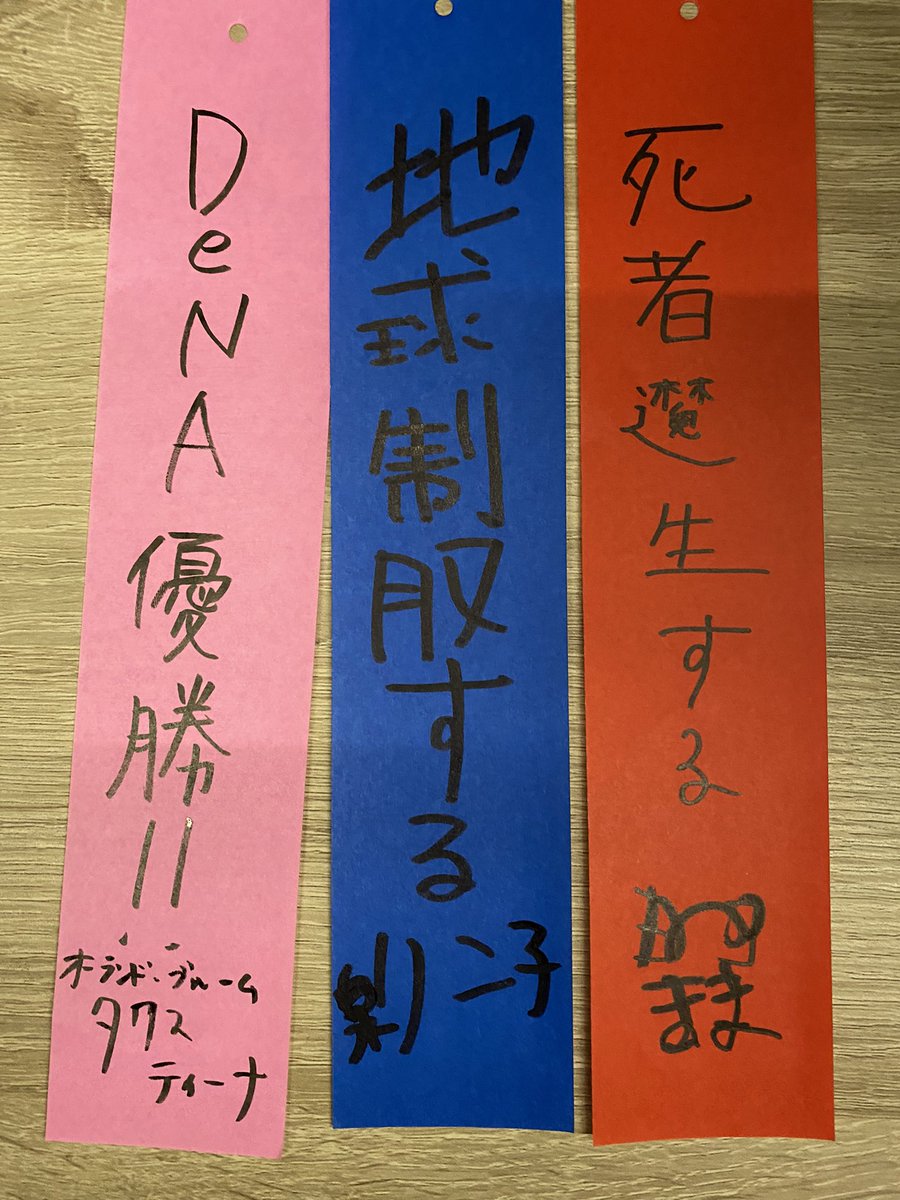 DeNA優勝!!
オーランド・ブルーム
タクス
ティーナ
地球制服する
死者
生する
まま